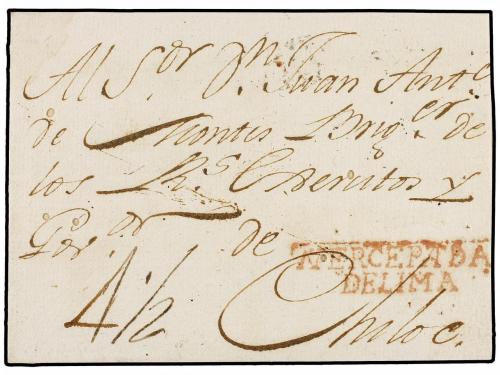 Al S.or Dn. Juan Ant.o
de Montes Brig.er de
los R.s Exercitos y
Gov.or de
YPERCEPTDA
DE LIMA
4 1/2 Chiloe.